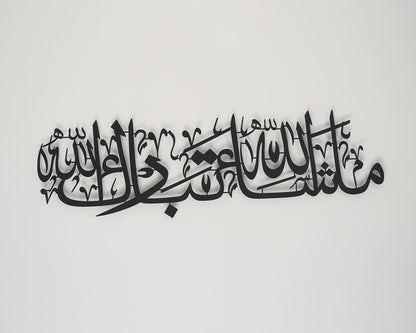 ماشاء الله تبارك الله